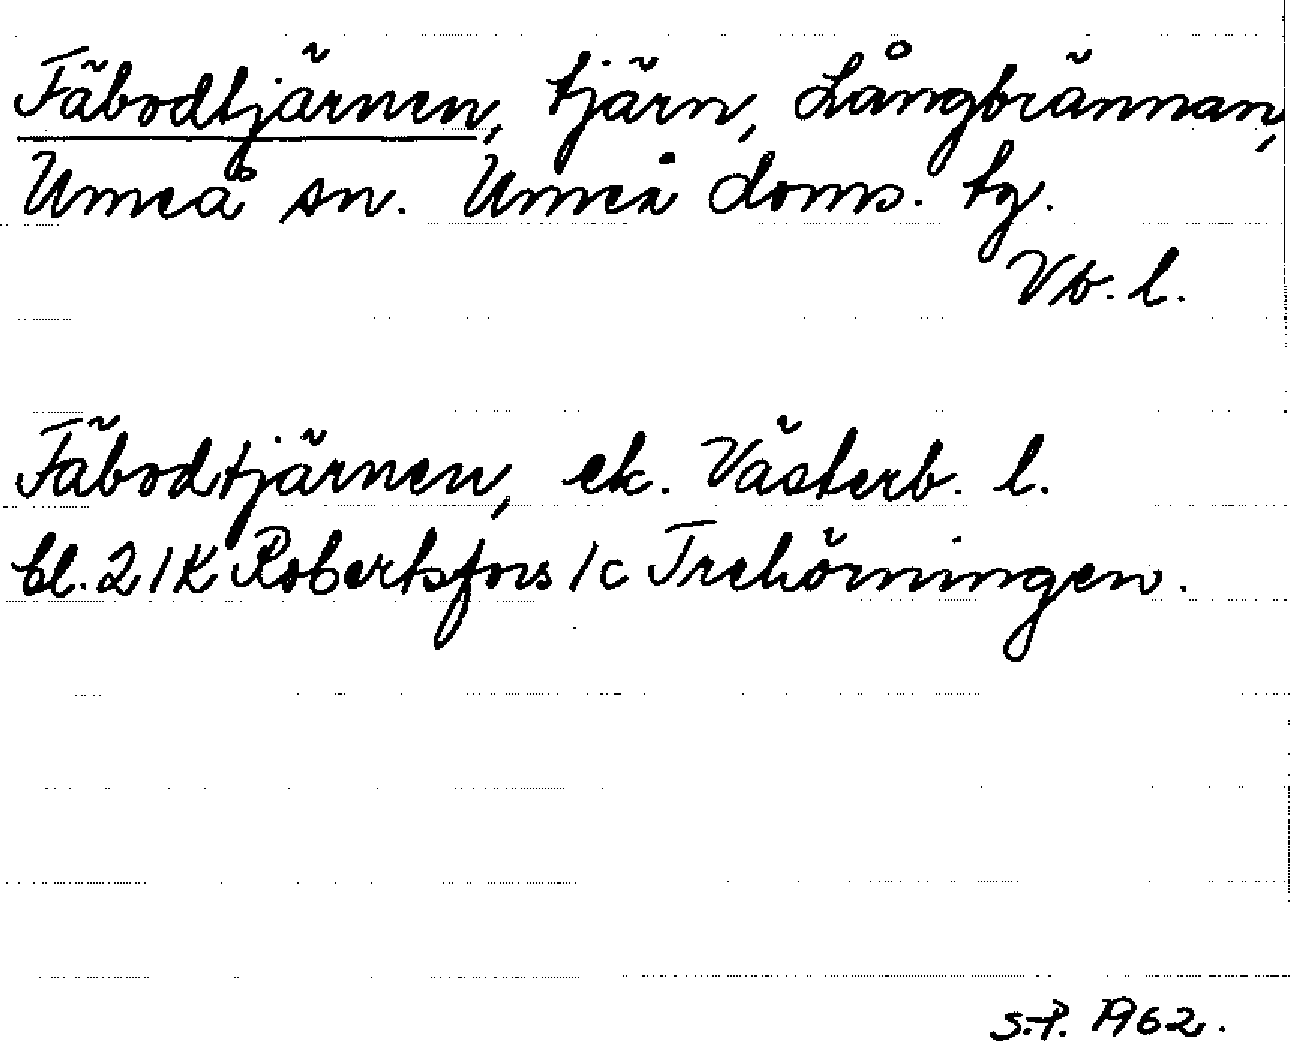 Fäbodtjärnen, tjärn, Långbrännan,
Umeå sn. Umeå doms. tg.
Vb. l.
Fäbodtjärnen, ek. Västerb. l.
bl. 21K Robertsfors 1c Trehörningen.
S.P. 1962.